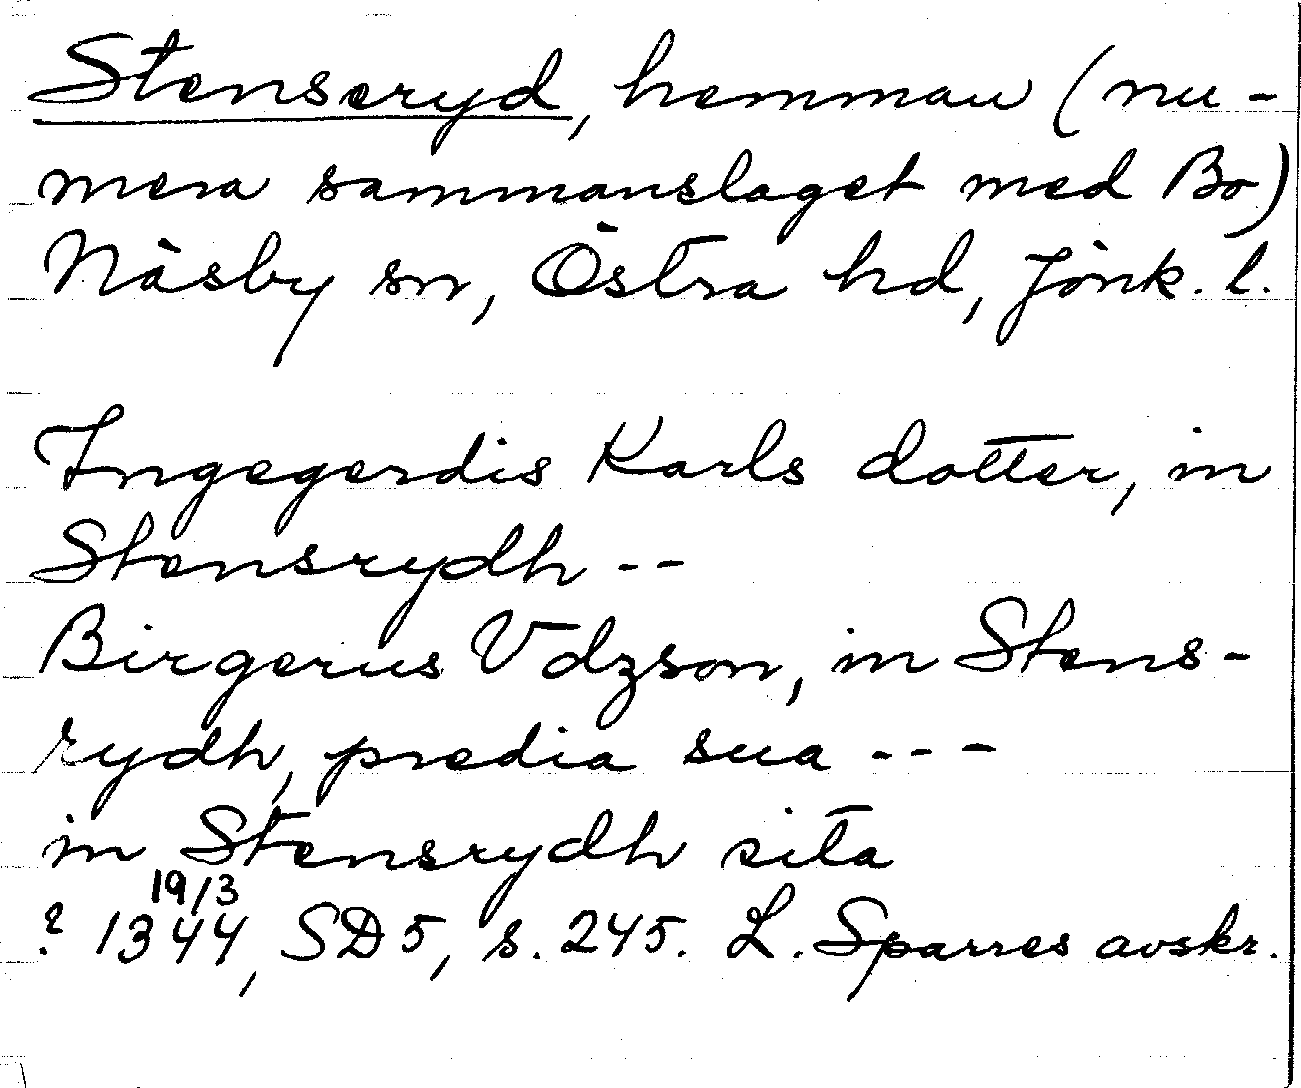 Stenseryd, hemman (nu-
mera sammanslaget med Bo)
Näsby sn, Östra hd, Jönk. l.
Ingegerdis Karls dotter, in
Stensrydh --
Birgerus Vdzson, in Stens-
rydh, predia sua ---
in Stensrydh sita
19/3
? 1344, SD 5, s. 245. L. Sparres avskr.